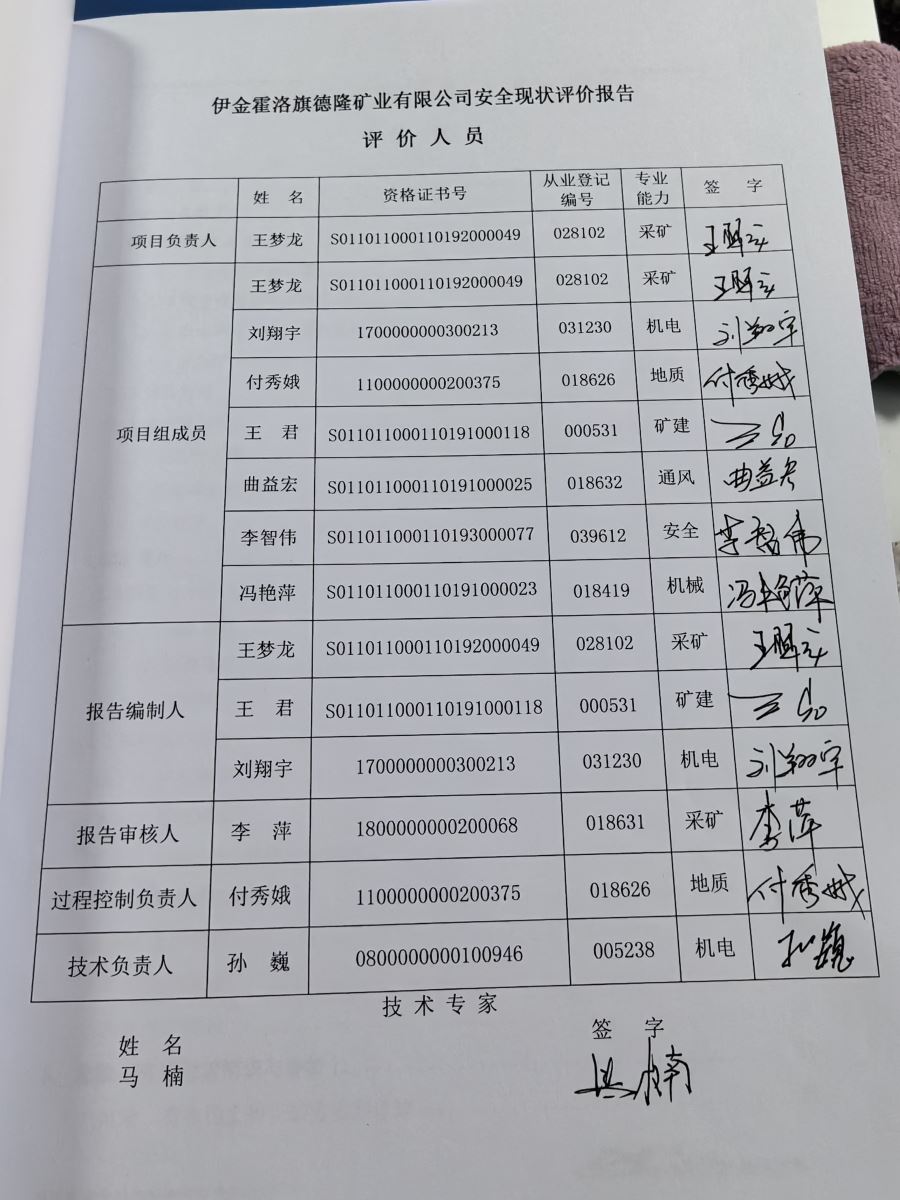 伊金霍洛旗德隆矿业有限公司安全现状评价报告
评 价 人 员
姓 名 资格证书号 从业登记编号 专业能力 签 字
项目负责人 王梦龙 S011011000110192000049 028102 采矿 王梦龙
项目组成员 王梦龙 S011011000110192000049 028102 采矿 王梦龙
刘翔宇 1700000000300213 031230 机电 刘翔宇
付秀娥 1100000000200375 018626 地质 付秀娥
王 君 S011011000110191000118 000531 矿建 王君
曲益宏 S011011000110191000025 018632 通风 曲益宏
李智伟 S011011000110193000077 039612 安全 李智伟
冯艳萍 S011011000110191000023 018419 机械 冯艳萍
报告编制人 王梦龙 S011011000110192000049 028102 采矿 王梦龙
王 君 S011011000110191000118 000531 矿建 王君
刘翔宇 1700000000300213 031230 机电 刘翔宇
报告审核人 李 萍 1800000000200068 018631 采矿 李萍
过程控制负责人 付秀娥 1100000000200375 018626 地质 付秀娥
技术负责人 孙 巍 0800000000100946 005238 机电 孙巍
技 术 专 家
姓 名 签 字
马 楠 马楠